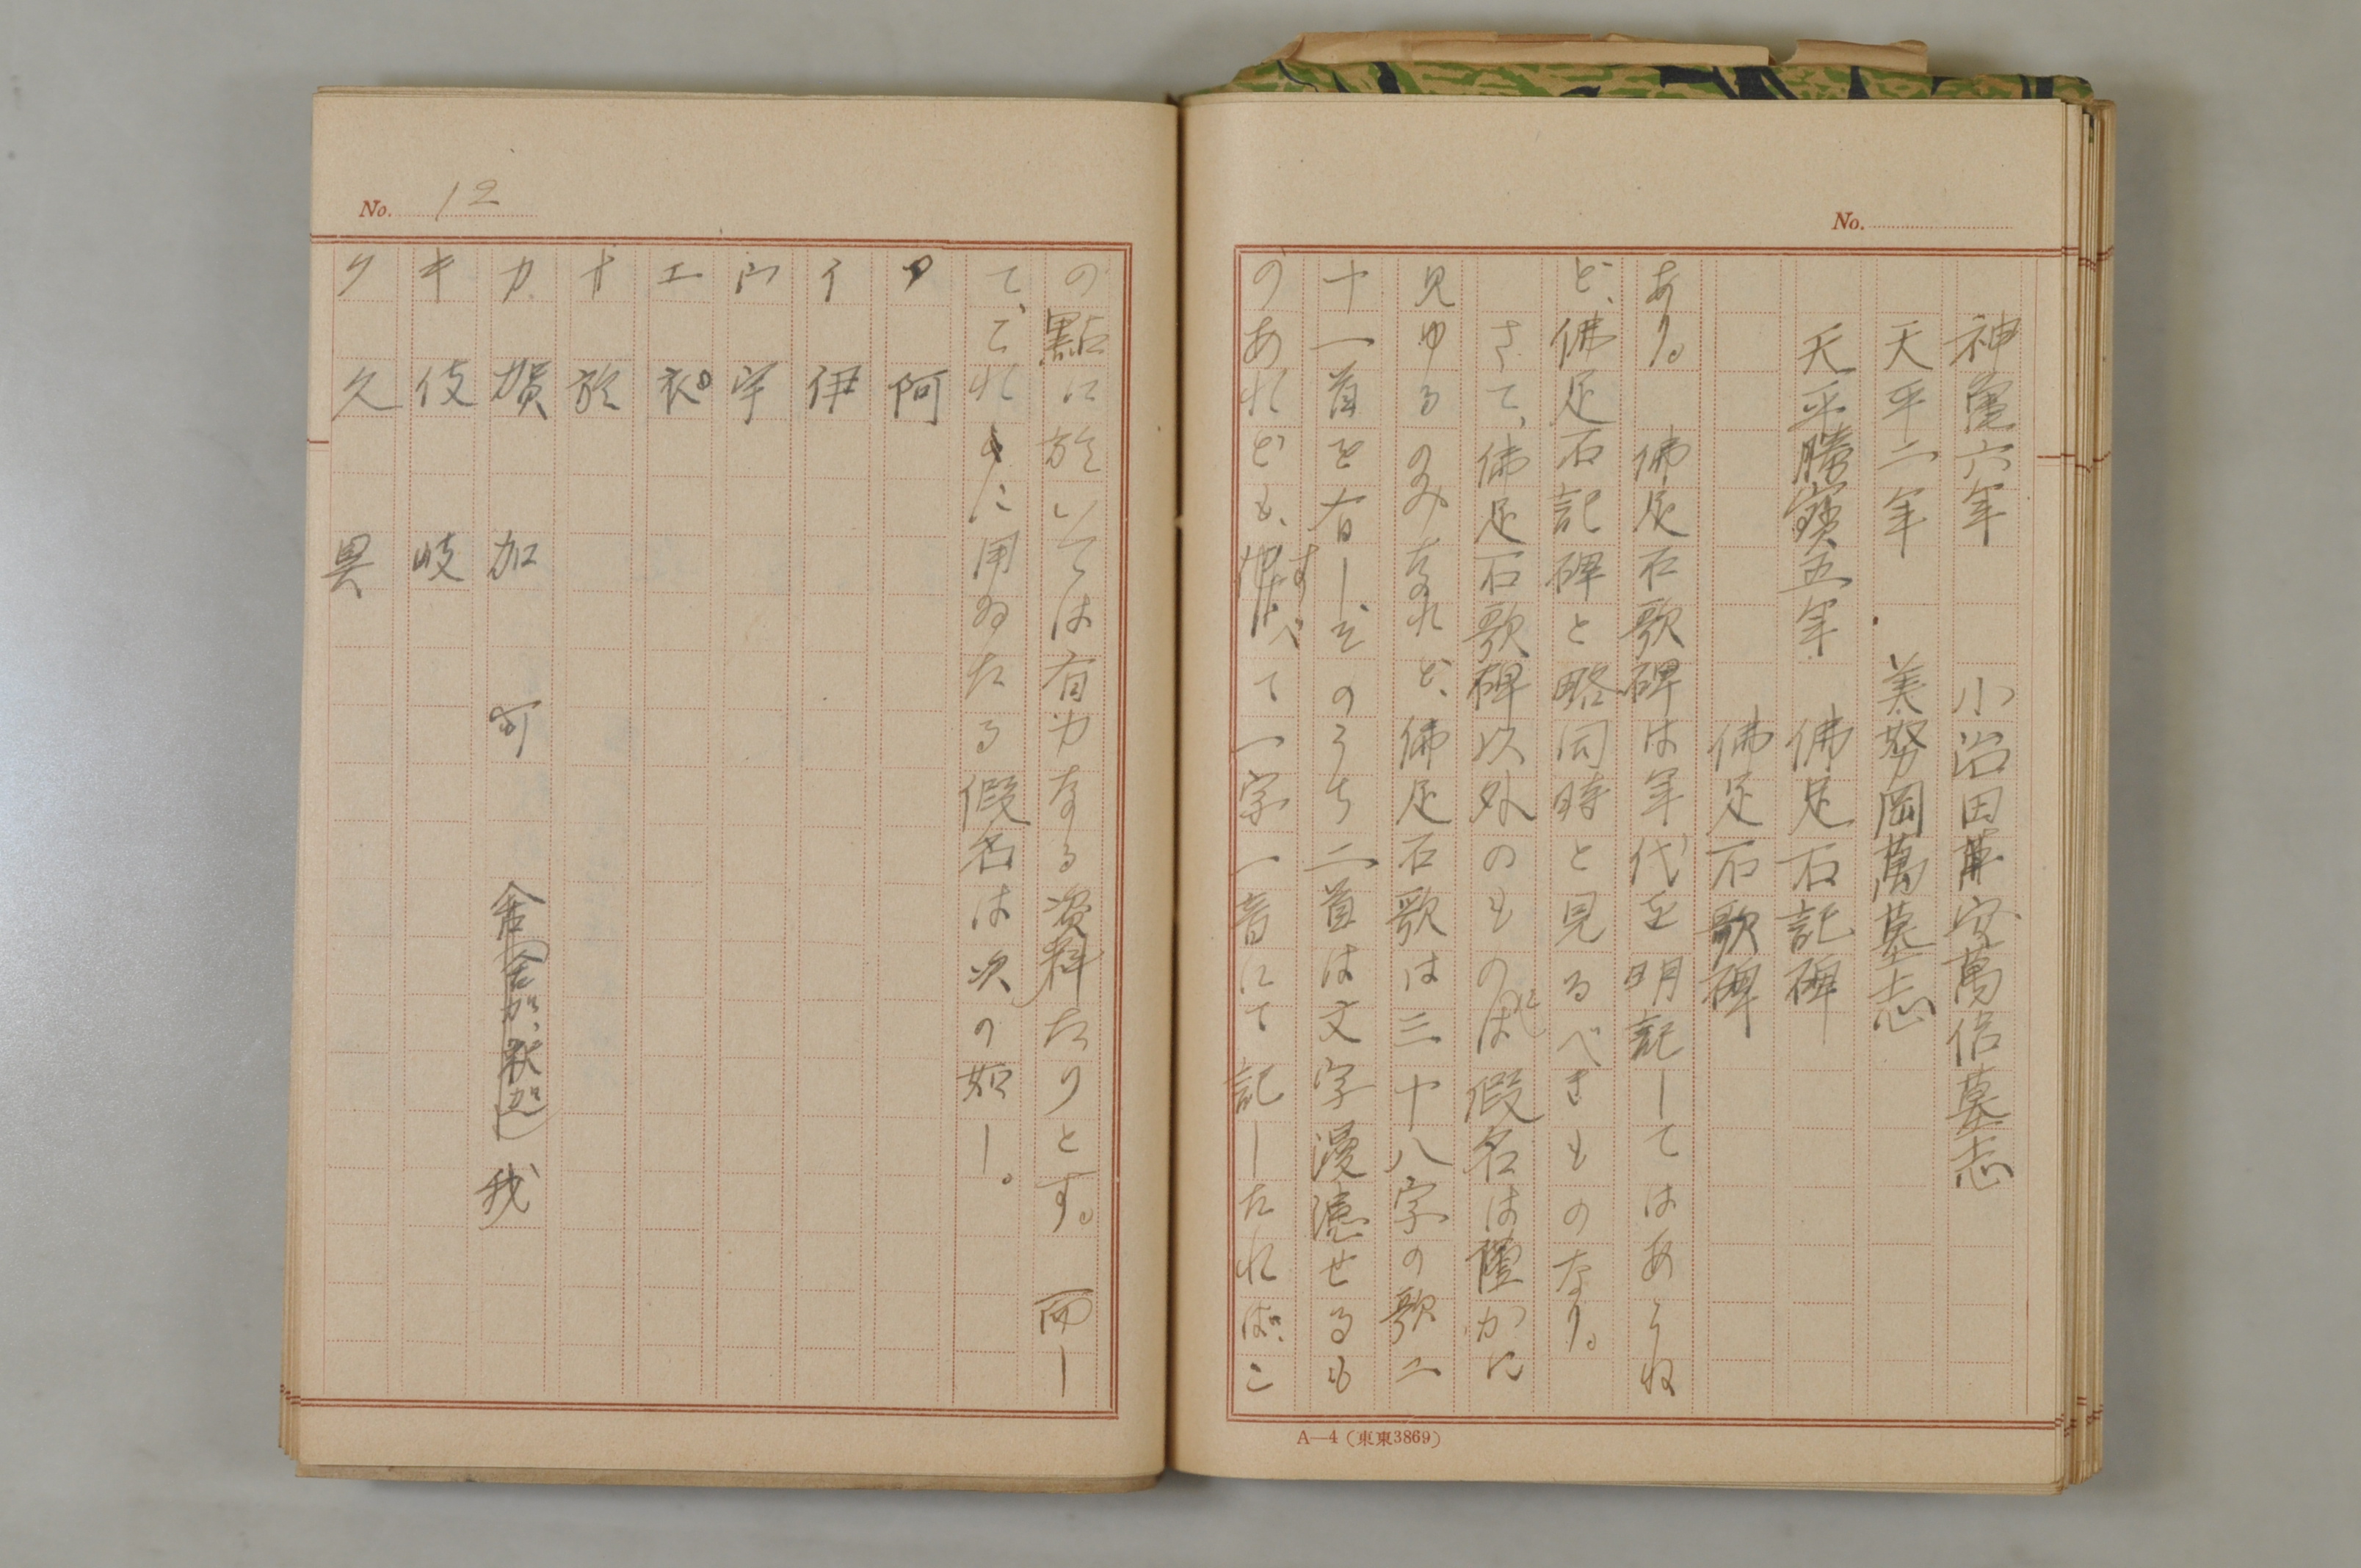 No.
神龜六年　小治田安萬侶墓志
天平二年　美努岡萬墓志
天平勝寶五年　佛足石記碑
佛足石歌碑
あり。　佛足石歌碑は年代を明記してはあらね
ど、佛足石記碑と略同時と見るべきものなり。
さて、佛足石歌碑以外のものには假名は僅かに
見ゆるのみなれど、佛足石歌は三十八字の歌二
十一首を有し、そのうち二首は文字漫漶せるも
のあれども、すべて一字一音にて記したれば、こ
A—4（東東3869）
No. 12
の點に於いては有力なる資料たりとす。　而し
て、これに用ゐたる假名は次の如し。
ア　阿
イ　伊
ウ　宇
エ　衣
オ　於
カ　賀　加　可　舍加、釈迦　我
キ　伎　岐
ク　久　具